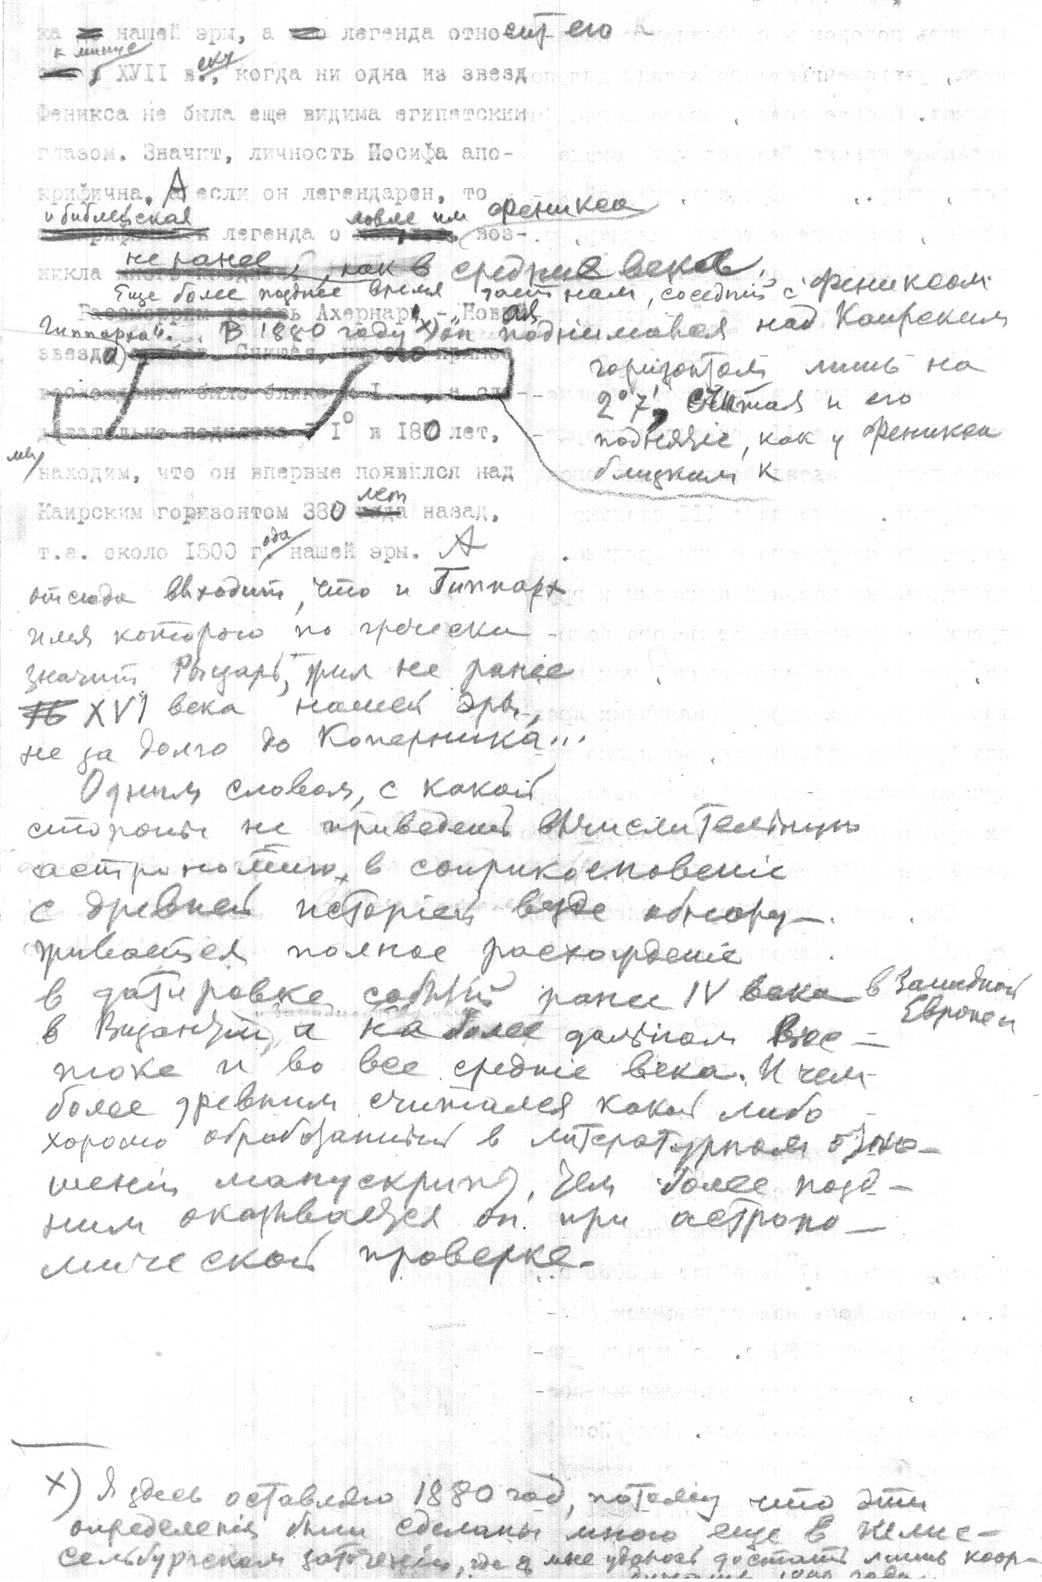 ка нашей эры, а легенда относит его к
к минус
XVII веку, когда ни одна из звезд
Феникса не была еще видима египетским
глазом. Значит, личность Иосифа апо-
крифична. А если он легендарен, то
и библейская легенда о ловле им Феникса воз-
никла не ранее, как в средние века.
Еще более позднее время даст нам, соседний с Фениксом
Ахернар - "Новая
звезда Гиппарха". В 1880 году х) он поднимался над Каирским
горизонтом лишь на
2°7', считая и его
поднятiе, как у Феникса
близким к
1° в 180 лет,
находим, что он впервые появился над
Каирским горизонтом 380 лет назад,
т.е. около 1500 года нашей эры. А
отсюда выходит, что и Гиппарх
имя которого по гречески
значит Рыцарь, жил не ранее
XVI века нашей эры,
не за долго до Коперника...
Одним словом, с какой
стороны не приведешь вычислительную
астрономию в соприкосновенiе
с древней исторiей везде обнару-
живается полное расхожденiе
в датировке событий ранее IV века в Западной
Европе и
в Византии, а на более дальнем Вос-
токе и во все среднiе века. И чем
более древним считался какой либо
хорошо обработанный в литературном отно-
шенiи манускрипт, тем более позд-
ним оказывается он при астроно-
мической проверке.
х) Я здесь оставляю 1880 год, потому что эти
определенiя были сделаны мною еще в Шлис-
сельбургском заточенiи, где мне удалось достать лишь коор-